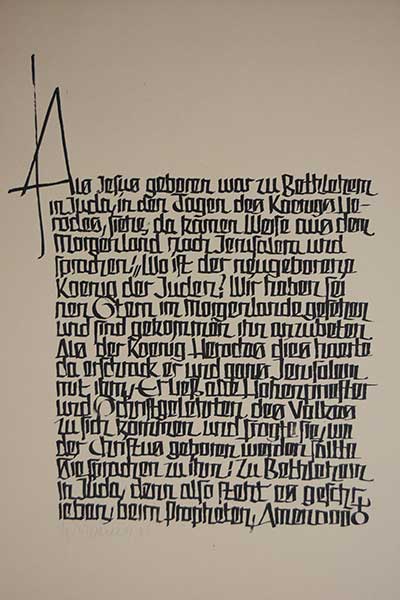 Als Jesus geboren war zu Bethlehem
in Juda, in den Tagen des Koenigs He-
rodes, siehe, da kamen Weise aus dem
Morgenland nach Jerusalem und
sprachen: „Wo ist der neugeborene
Koenig der Juden? Wir haben sei
nen Stern im Morgenlande gesehen
und sind gekommen ihn anzubeten
Als der Koenig Herodes dies hoerte
da erschrack er und ganz Jerusalem
mit ihm, Er ließ alle Hohenpriester
und Schriftgelehrten des Volkes
zu sich kommen und fragte sie, wo
der Christus geboren werden sollte
Sie sprachen zu ihm: Zu Bethlehem
in Juda, denn also steht es geschr
ieben, beim Propheten, Amen